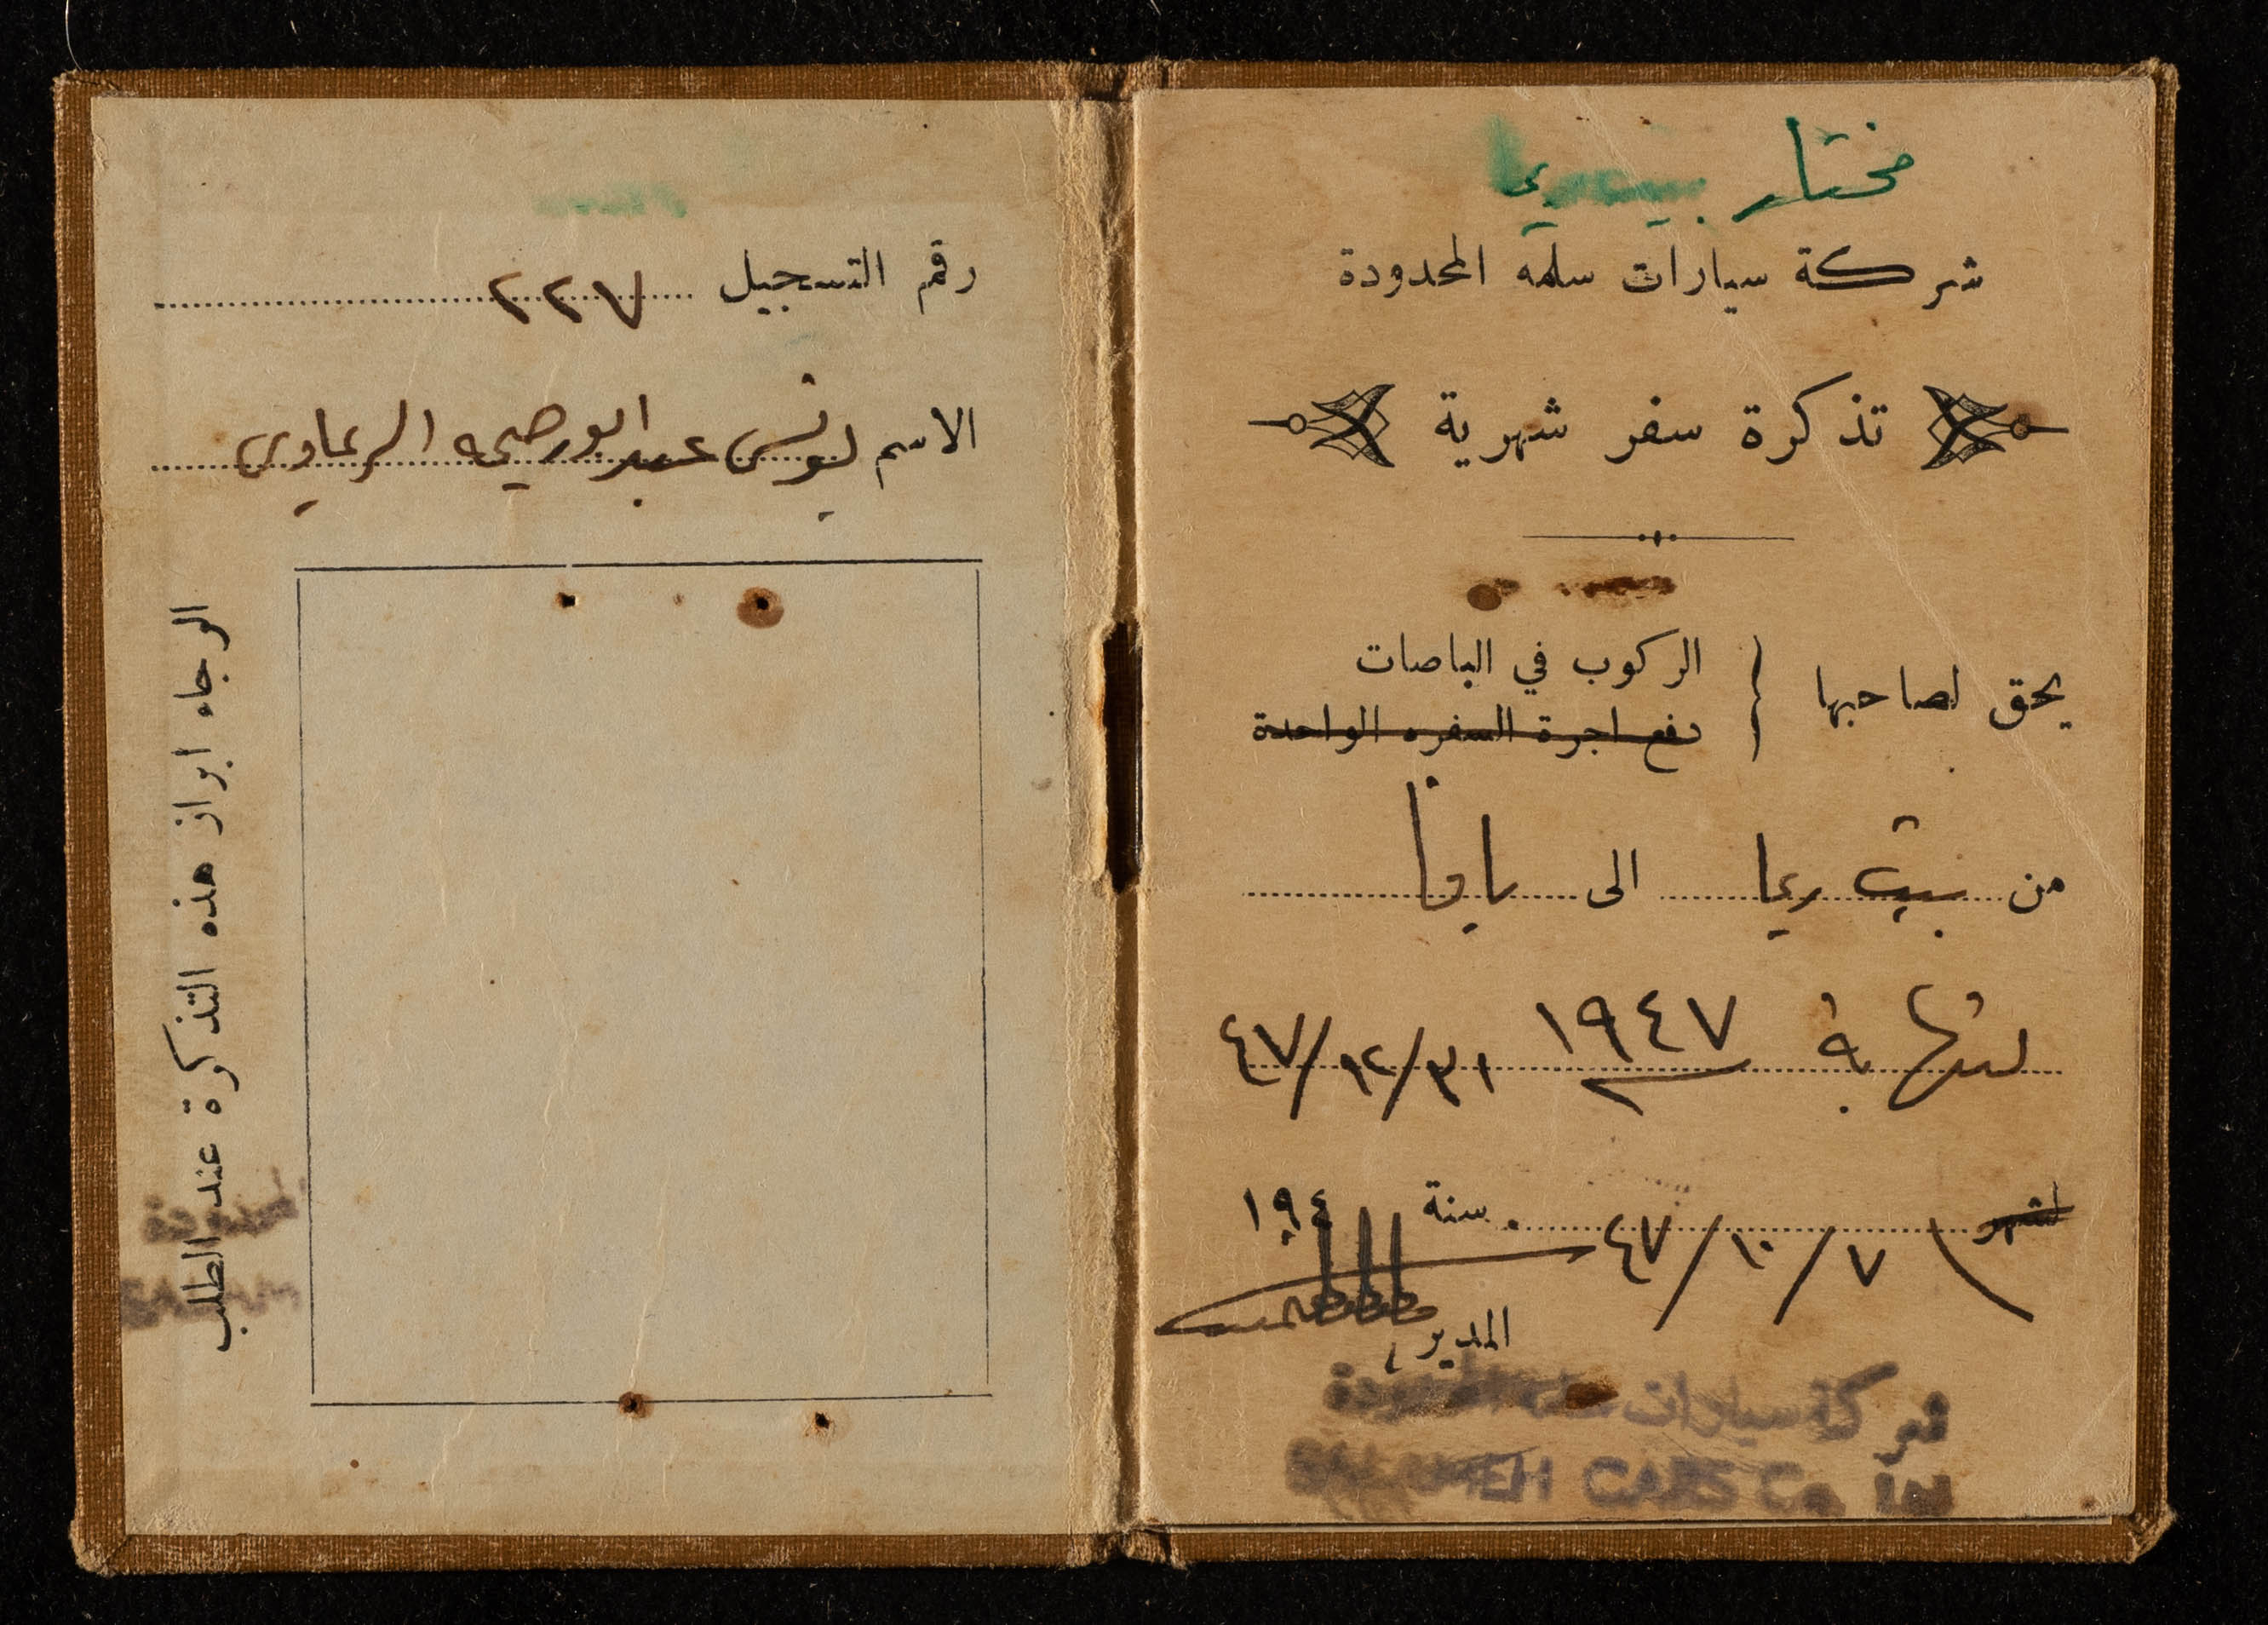 مختار بيت ريما
شركة سيارات سلمه المحدودة
تذكرة سفر شهرية
يحق لصاحبها
الركوب في الباصات
دفع اجرة السفره الواحدة
من بيت ريما الى يافا
لنهاية ١٩٤٧ ٣١/١٢/٤٧
لشهر سنة ١٩٤
٧/١٠/٤٧
المدير
شركة سيارات سلمه المحدودة
SALAMEH CARS Co. Ltd
رقم التسجيل ٢٢٧
الاسم يونس عبد الريماوي
الرجاء ابراز هذه التذكرة عند الطلب